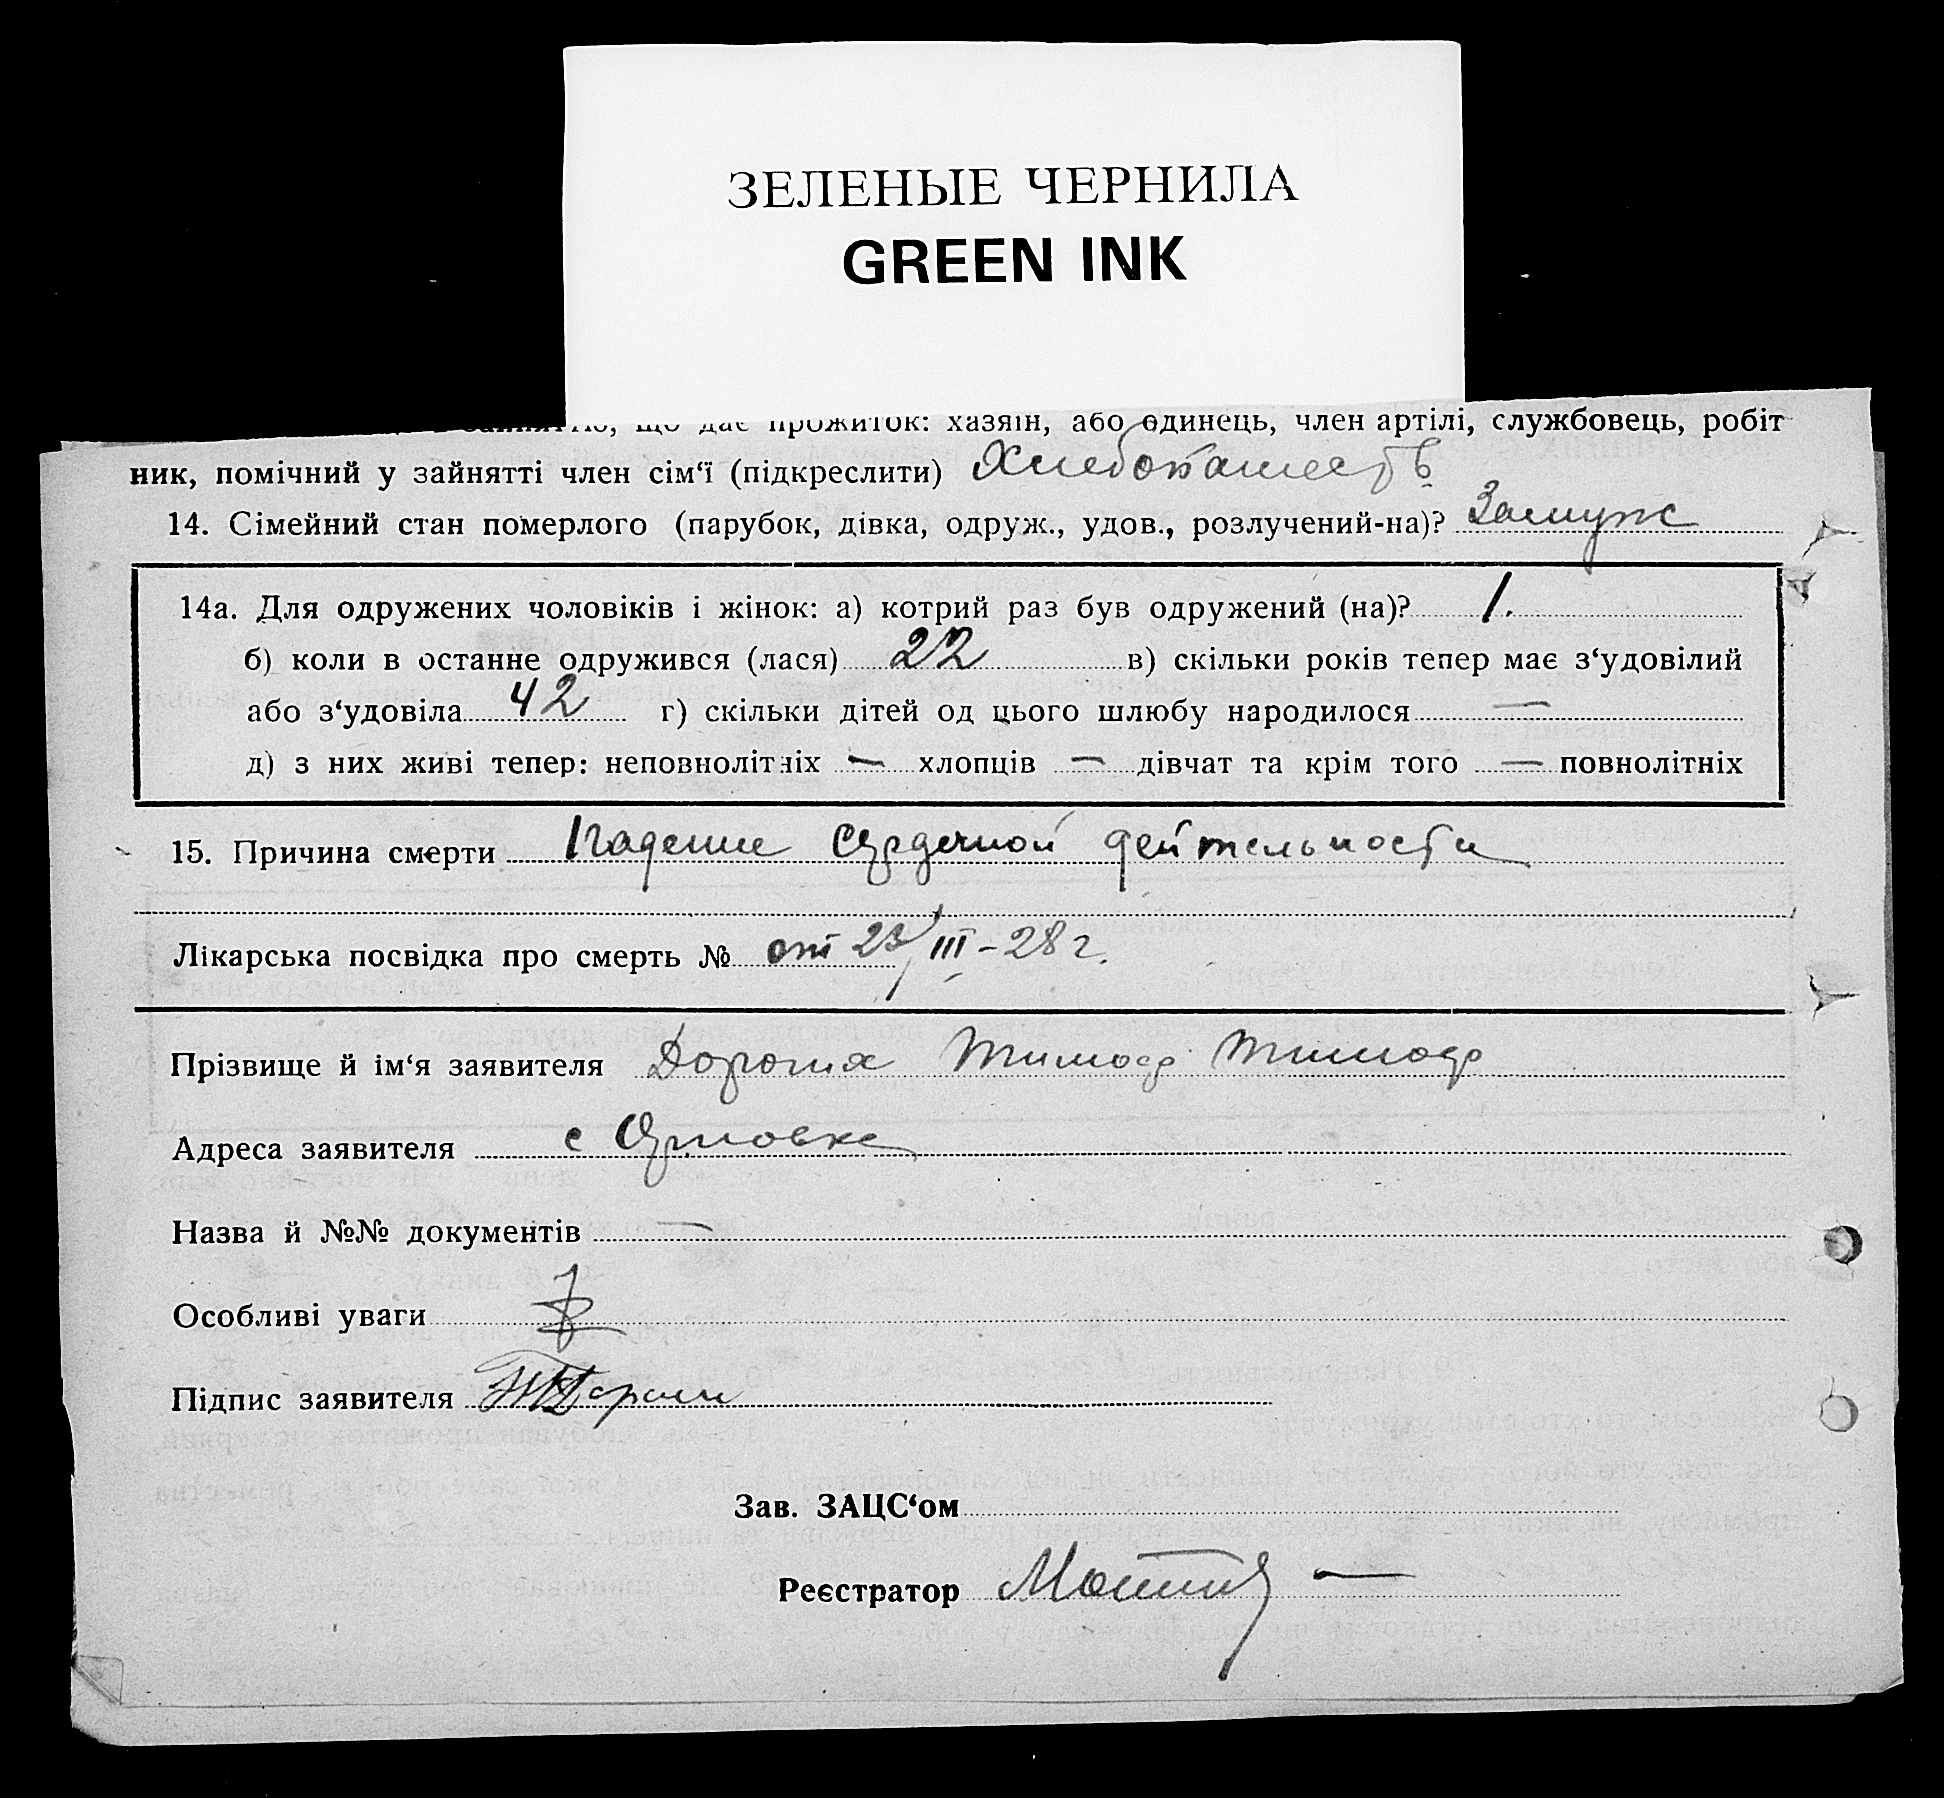 ЗЕЛЕНЫЕ ЧЕРНИЛА
GREEN INK
що дає прожиток: хазяїн, або одинець, член артілі, службовець, робіт
ник, помічний у зайнятті член сім‘ї (підкреслити)
14. Сімейний стан померлого (парубок, дівка, одруж., удов., розлучений-на)? Замуж
14а. Для одружених чоловіків і жінок: а) котрий раз був одружений (на)? 1.
б) коли в останне одружився (лася) 22 в) скільки років тепер має з‘удовілий
або з‘удовіла 42 г) скільки дітей од цього шлюбу народилося —
д) з них живі тепер: неповнолітніх — хлопців — дівчат та крім того — повнолітніх
15. Причина смерти Падение сердечной дейтельности
Лікарська посвідка про смерть № от 23/III–28 г.
Прізвище й ім‘я заявителя Тимоф Тимоф
Адреса заявителя с
Назва й №№ документів —
Особливі уваги
Підпис заявителя
Зав. ЗАЦС‘ом
Реєстратор